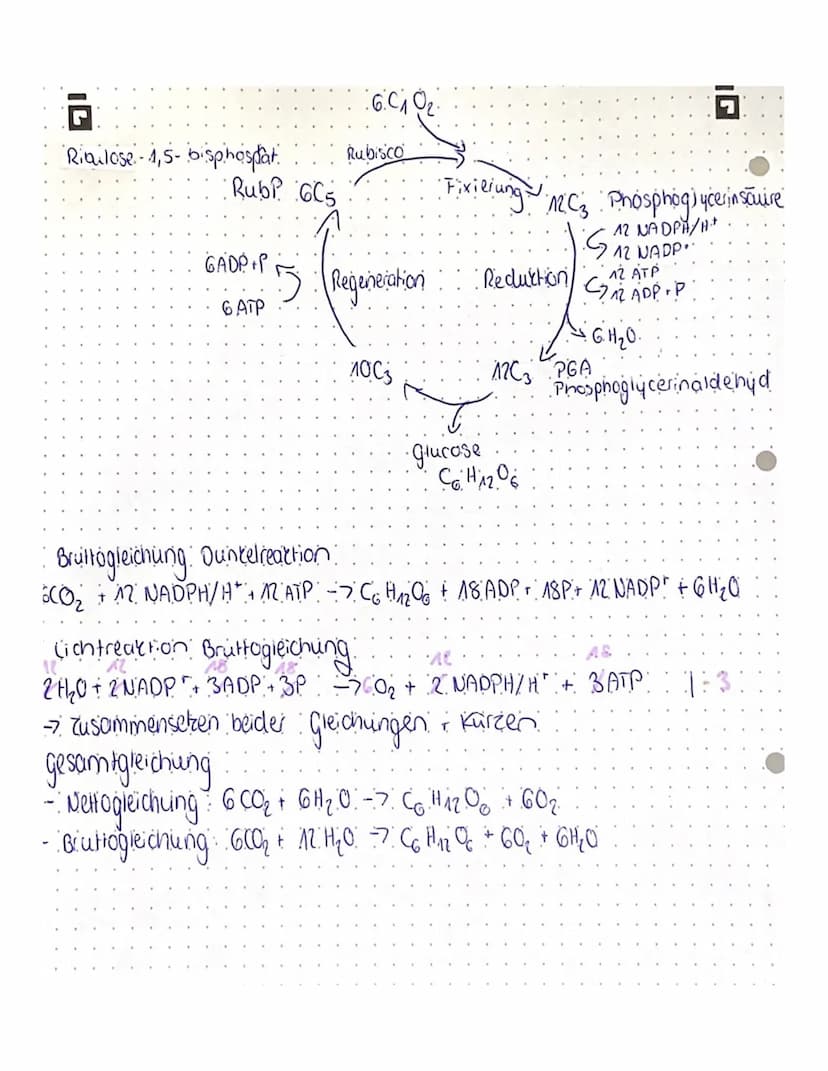 6 C1 O2
Ribulose-1,5-bisphosphat
Rubisco
RubP 6C5
Fixierung
12C3 Phosphoglycerinsäure
12 NADPH/H+
12 NADP+
12 ATP
12 ADP+P
6ADP+P
6 ATP
Regeneration
Reduktion
6H2O
10C3
12C3 PGA
Phosphoglycerinaldehyd
Glucose
C6H12O6
Bruttogleichung Dunkelreaktion
6CO2 + 12 NADPH/H+ + 12 ATP -> C6H12O6 + 18 ADP + 18P + 12 NADP+ + 6H2O
Lichtreaktion Bruttogleichung
12 12 18 18 12 18
2H2O + 2NADP+ + 3ADP + 3P -> 6O2 + 2 NADPH/H+ + 3ATP |·3
-> zusammensetzen beider Gleichungen + kürzen
Gesamtgleichung
- Nettogleichung: 6CO2 + 6H2O -> C6H12O6 + 6O2
- Bruttogleichung: 6CO2 + 12 H2O -> C6H12O6 + 6O2 + 6H2O